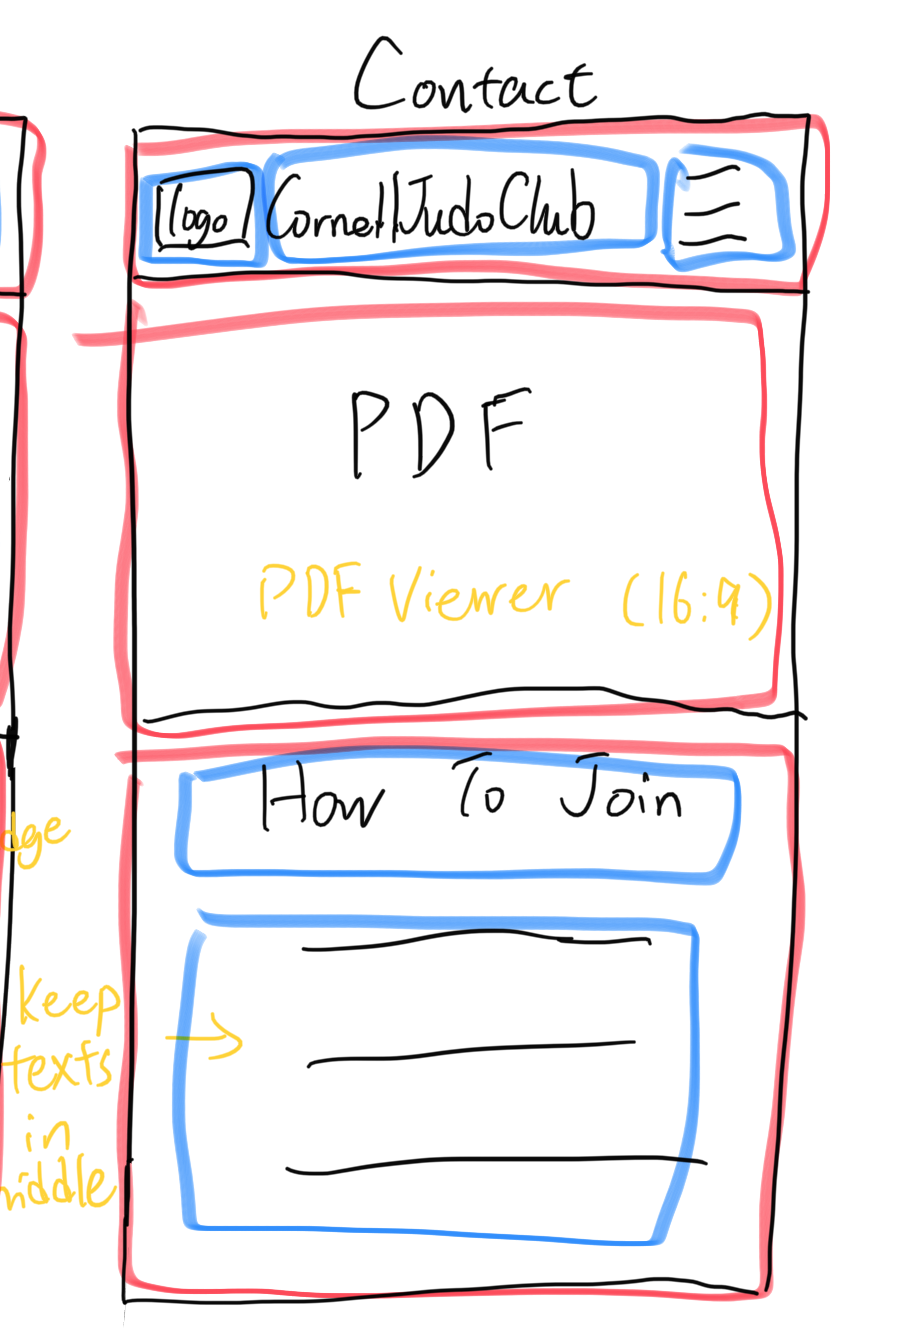 Contact
logo
Cornell Judo Club
PDF
PDF Viewer (16:9)
How To Join
dge
keep
texts
in
middle